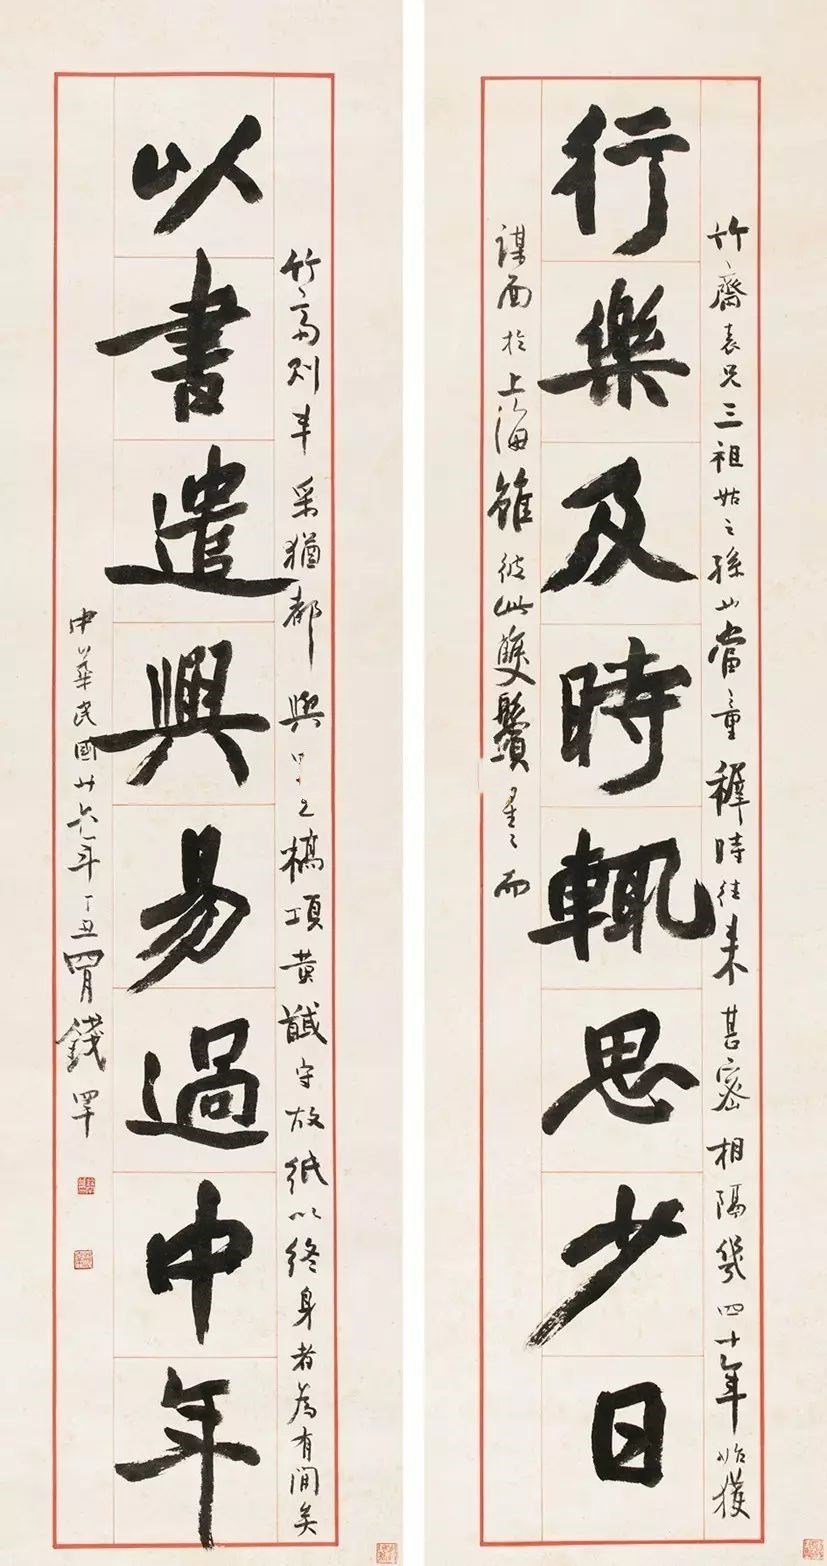 竹齋表兄三祖姑之孫也當童穉時往來甚密相隔幾四十年始獲
行樂及時輒思少日
謀面於上海雖彼此雙鬢星星而
竹齋則丰采猶都與之槁項黃馘守故紙以終身者為有間矣
以書遣興易過中年
中華民國廿六年丁丑四月錢罕